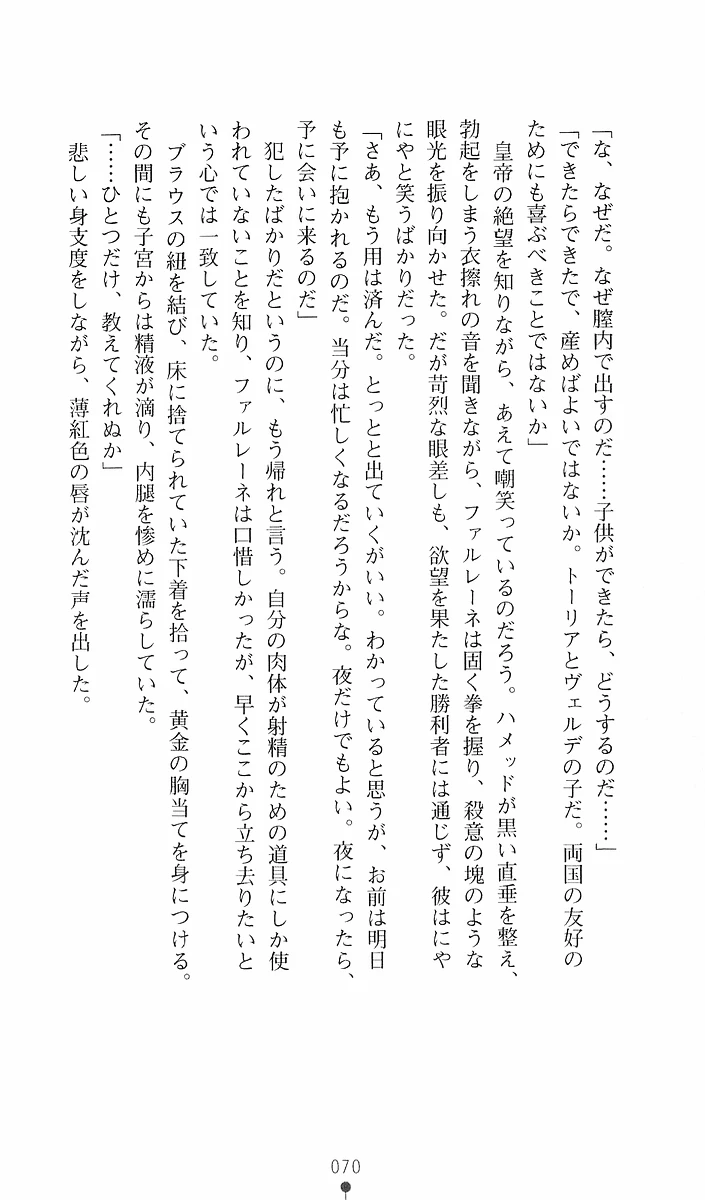 「な、なぜだ。なぜ膣内で出すのだ……子供ができたら、どうするのだ……」
「できたらできたで、産めばよいではないか。トーリアとヴェルデの子だ。両国の友好の
ためにも喜ぶべきことではないか」
　皇帝の絶望を知りながら、あえて嘲笑っているのだろう。ハメッドが黒い直垂を整え、
勃起をしまう衣擦れの音を聞きながら、ファルレーネは固く拳を握り、殺意の塊のような
眼光を振り向かせた。だが苛烈な眼差しも、欲望を果たした勝利者には通じず、彼はにや
にやと笑うばかりだった。
「さあ、もう用は済んだ。とっとと出ていくがいい。わかっていると思うが、お前は明日
も予に抱かれるのだ。当分は忙しくなるだろうからな。夜だけでもよい。夜になったら、
予に会いに来るのだ」
　犯したばかりだというのに、もう帰れと言う。自分の肉体が射精のための道具にしか使
われていないことを知り、ファルレーネは口惜しかったが、早くここから立ち去りたいと
いう心では一致していた。
　ブラウスの紐を結び、床に捨てられていた下着を拾って、黄金の胸当てを身につける。
その間にも子宮からは精液が滴り、内腿を惨めに濡らしていた。
「……ひとつだけ、教えてくれぬか」
　悲しい身支度をしながら、薄紅色の唇が沈んだ声を出した。
070